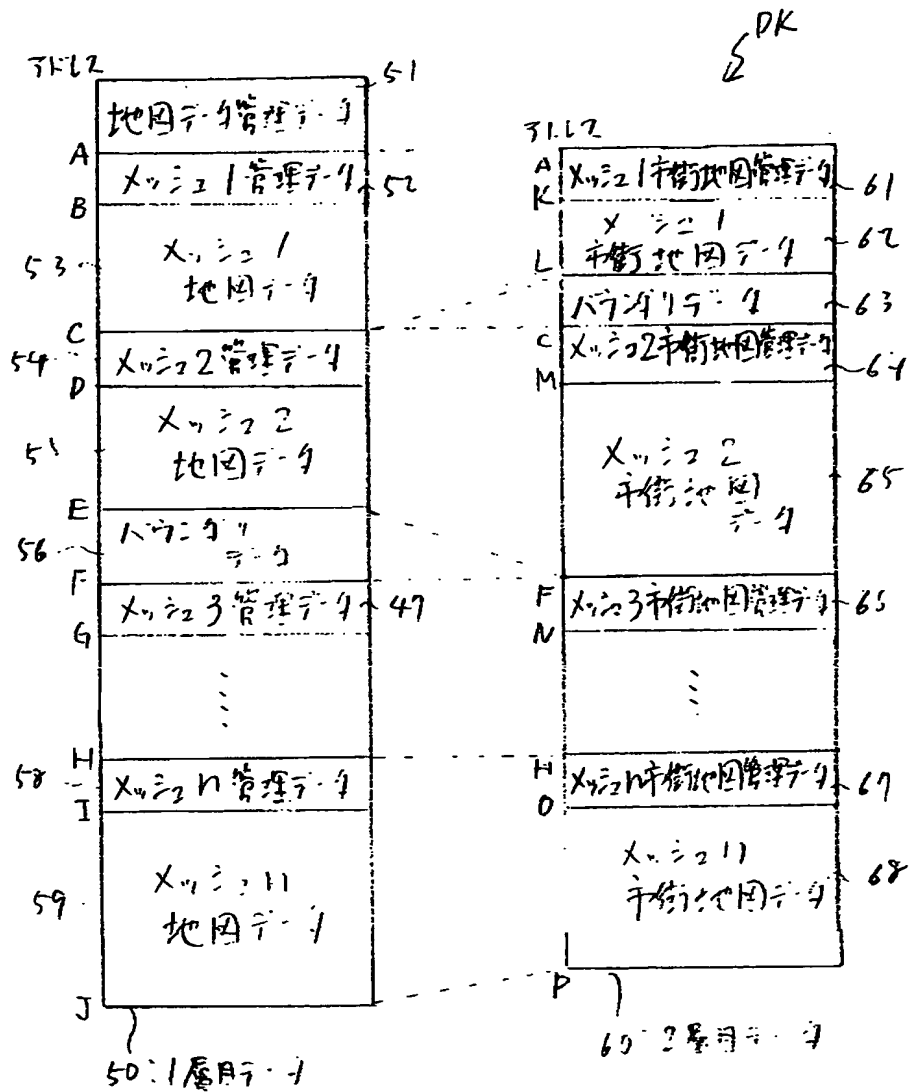 DK
アドレス
51
地図データ管理データ
A
メッシュ1管理データ
52
B
53
メッシュ1
地図データ
C
54
メッシュ2管理データ
D
メッシュ2
地図データ
E
56
バウンダリ
データ
F
メッシュ3管理データ
47
G
H
58
メッシュn管理データ
I
59
メッシュn
地図データ
J
50:1層目データ
アドレス
A
メッシュ1市街地図管理データ
61
K
メッシュ1
市街地図データ
62
L
バウンダリデータ
63
C
メッシュ2市街地図管理データ
64
M
メッシュ2
市街地図
データ
65
F
メッシュ3市街地図管理データ
N
H
メッシュn市街地図管理データ
67
O
メッシュn
市街地図データ
68
P
60:2層目データ